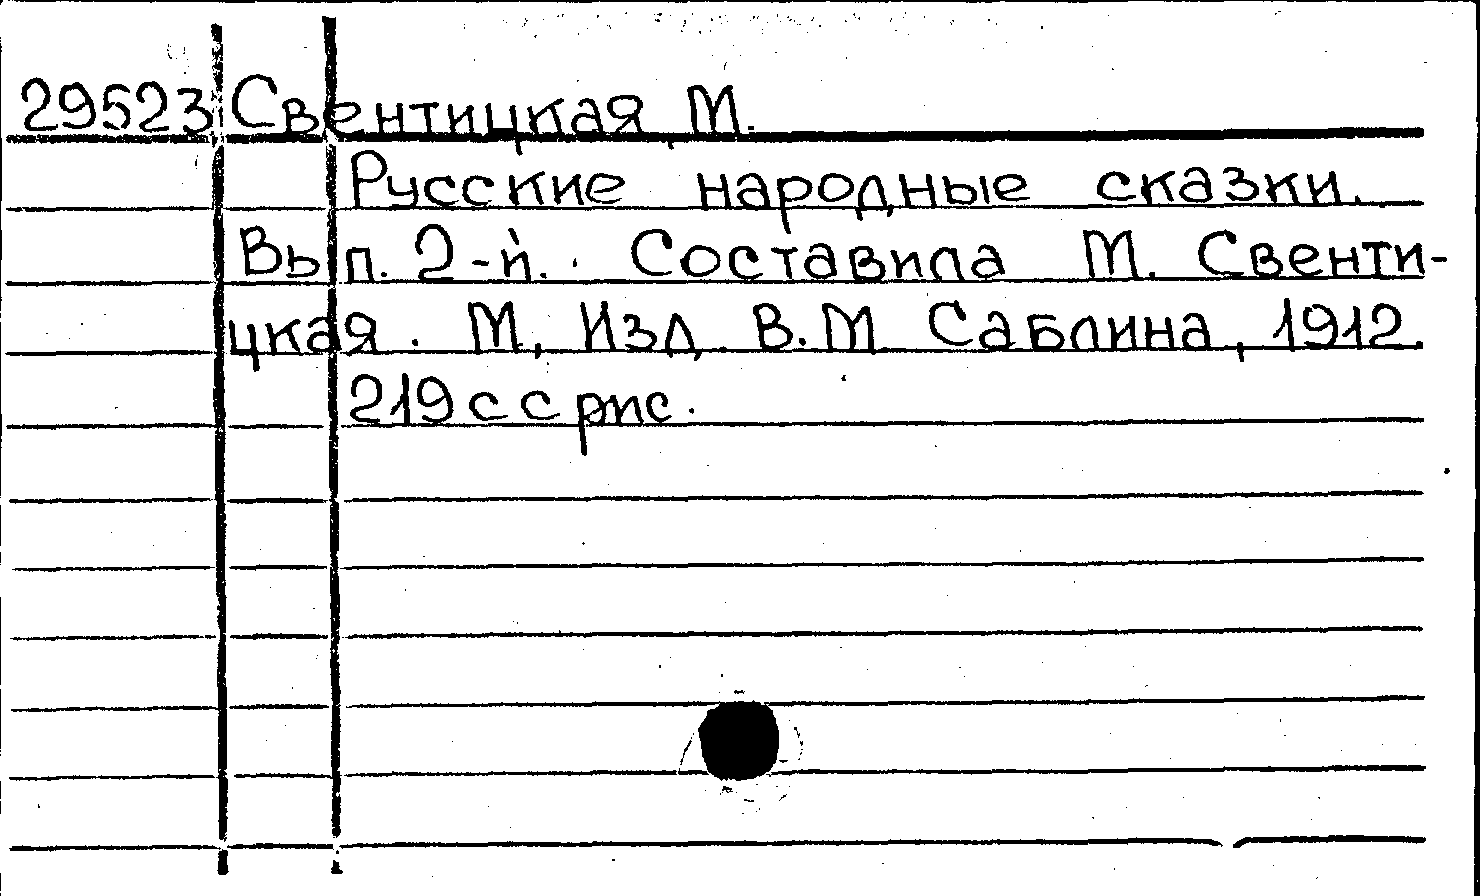 29523 Свентицкая, М.
Русские народные сказки.
Вып. 2-й. Составила М. Свенти-
цкая. М, Изд. В.М. Саблина, 1912.
219 с с рис.